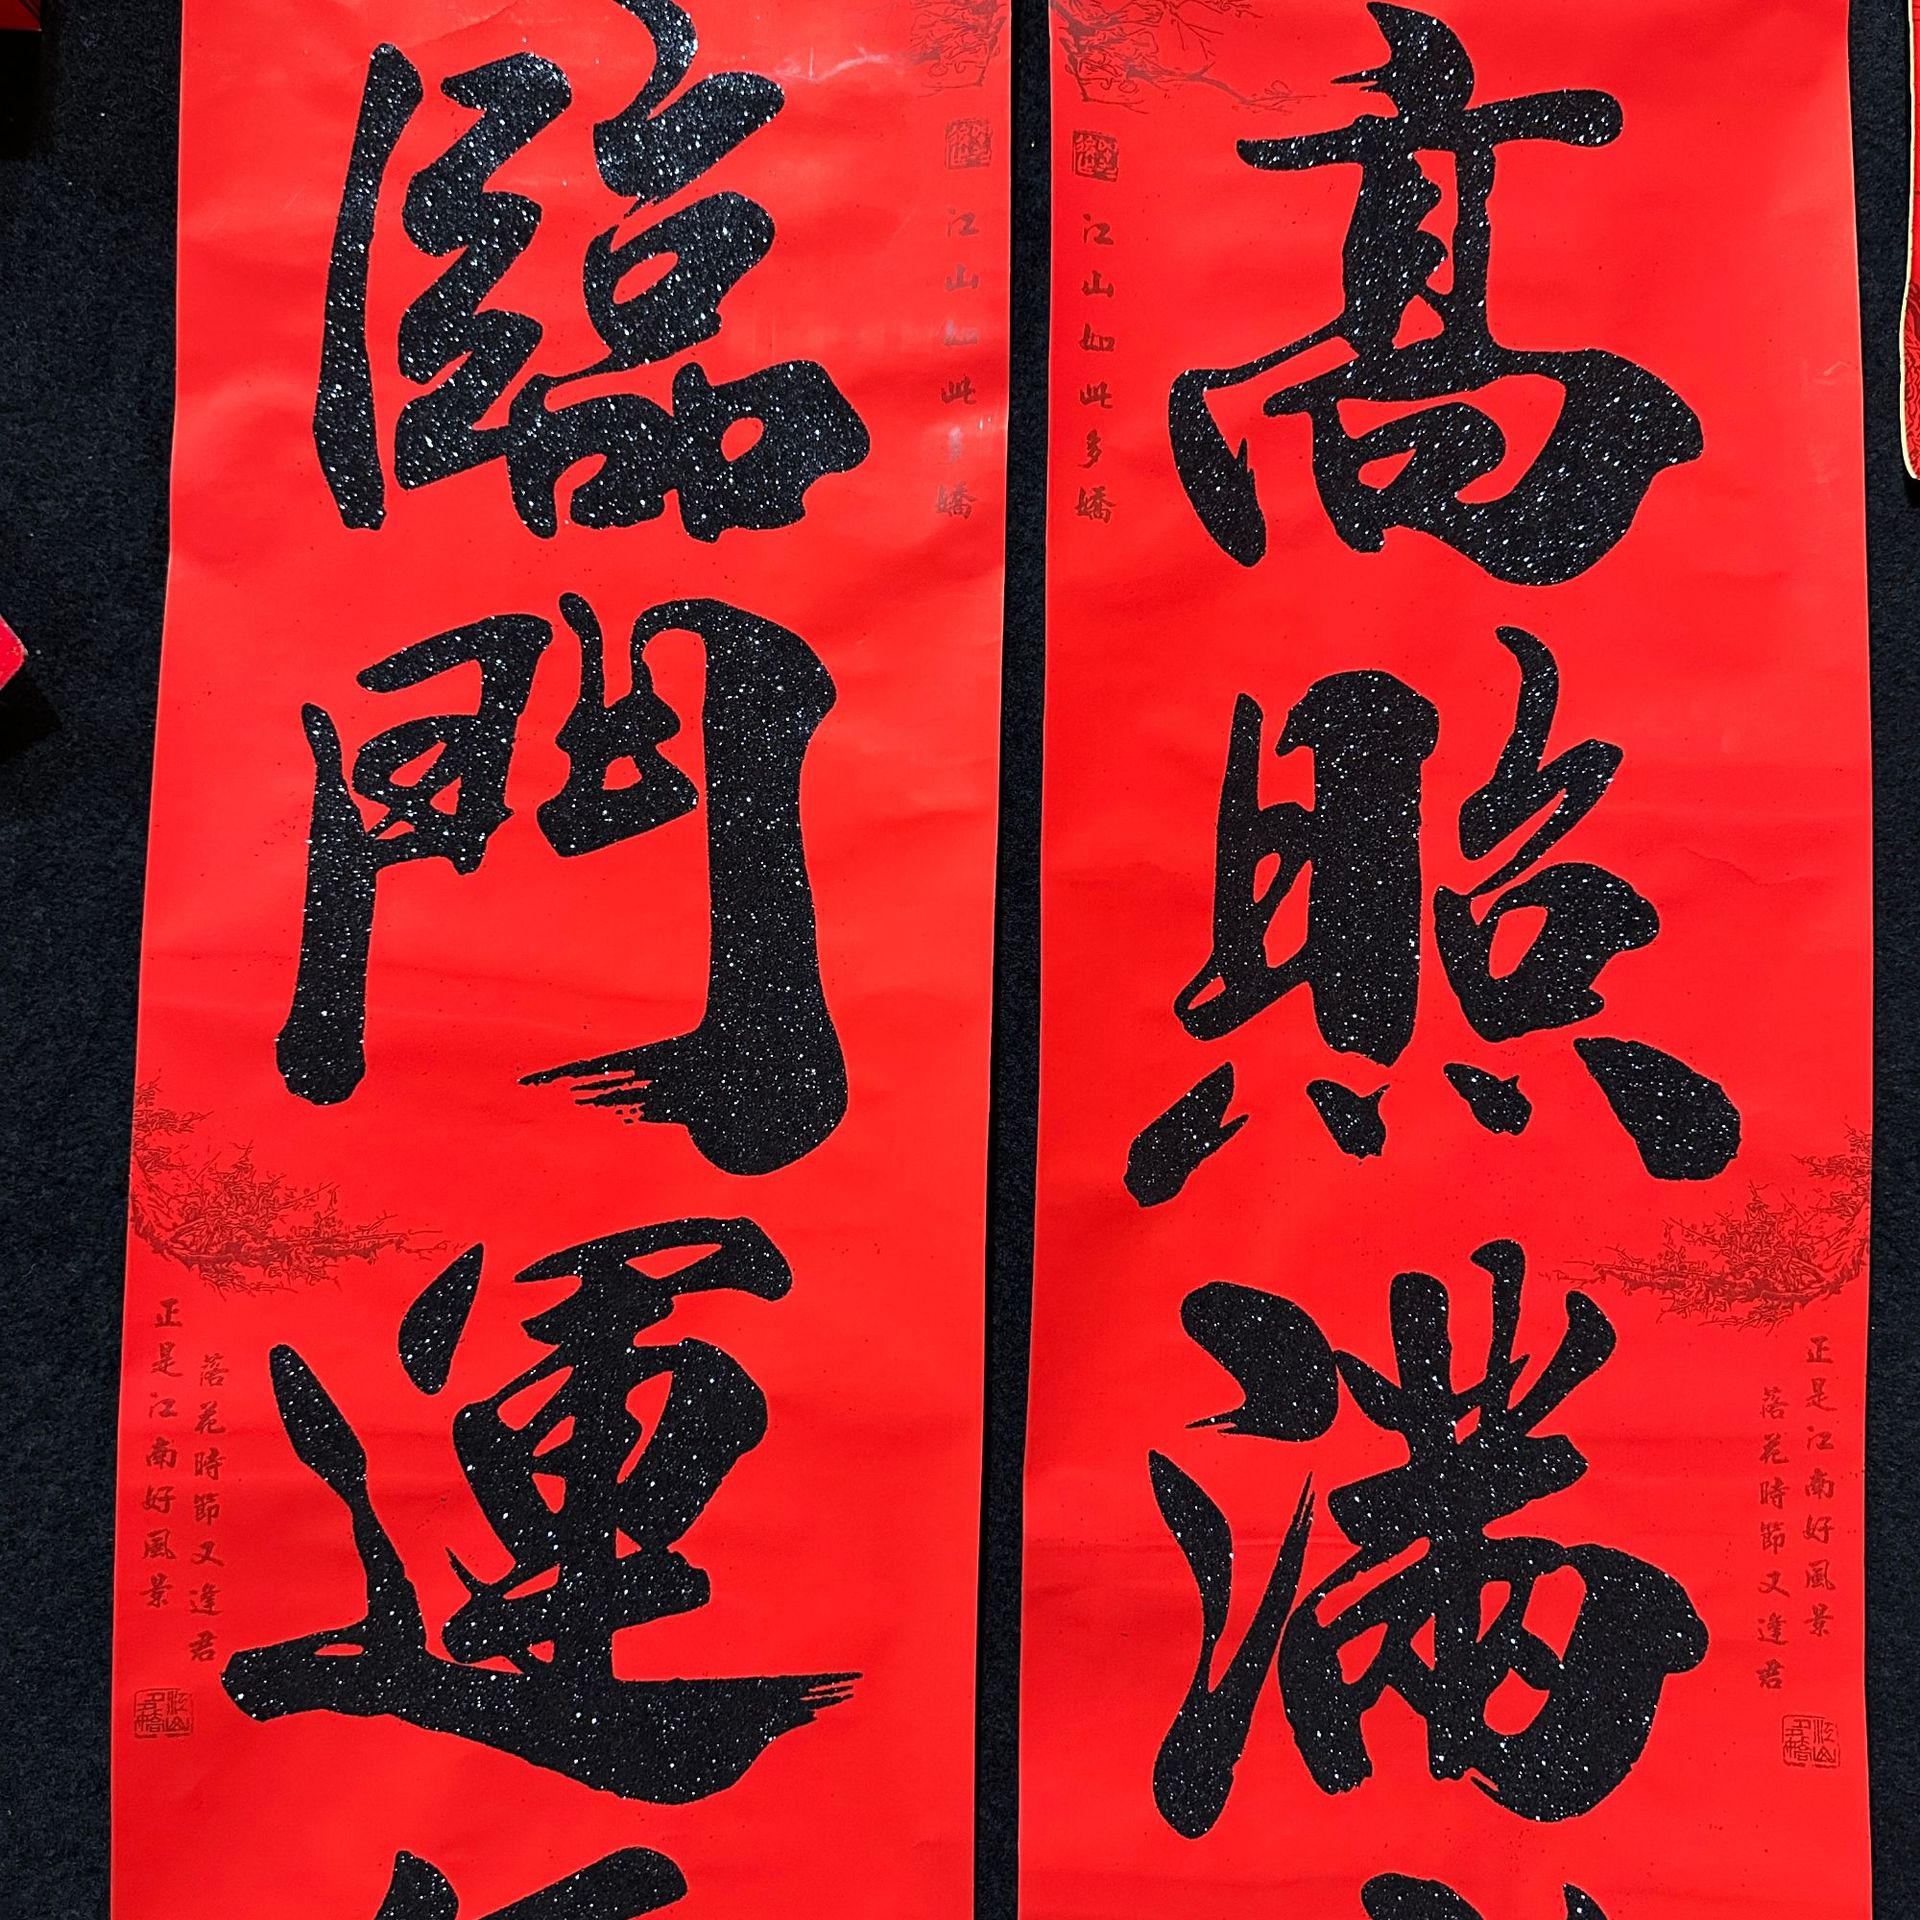 高照满
江山如此多嬌
正是江南好風景
落花時節又逢君
臨門運
江山如此多嬌
正是江南好風景
落花時節又逢君